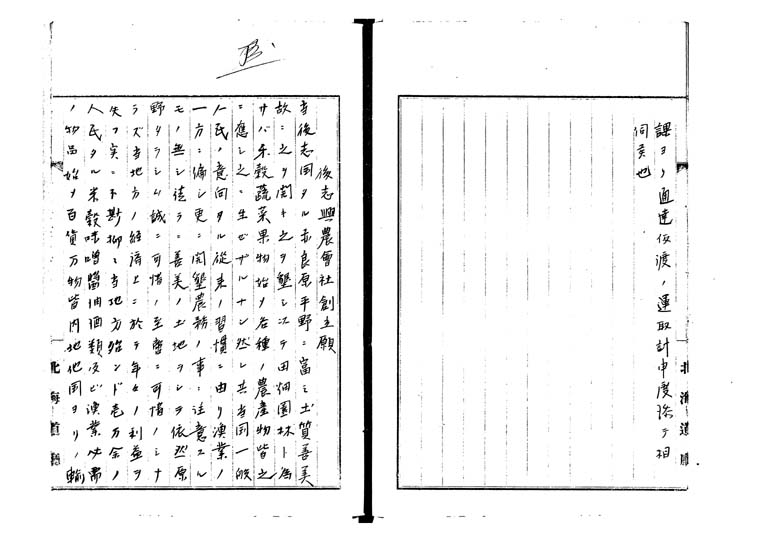 課ヨリ通達相渡ノ運取計申度除テ相
伺候也
北海道廳
後志興農會社創立願
当後志国タル赤良原平野ニ富ミ土質善美
故ニ之ヲ開ト之ヲ墾シニステ田畑園林ト為
サバ禾穀蔬菜果物始メ各種ノ農産物皆之
ニ應シ之ニ生ゼザルナシ然レ共当国一般
人民ノ意向タル従来ノ習慣ニ由リ漁業ノ
一方ニ偏シ更ニ開墾農務ノ事ニ注意スル
モノ無シ徒ラニ善美ノ土地ヲシテ依然原
野タラシム誠ニ可惜ノ至啻ニ可惜ノミナ
ラズ当地方ノ経済上ニ於テ年々ノ利益ヲ
失フ実ニ不尠抑々当地方殆ンド壱万余ノ
人民タル米穀味噌醤油酒類及ビ漁業必需
ノ物品始メ百貨万物皆内地他国ヨリノ輸
北海道廳